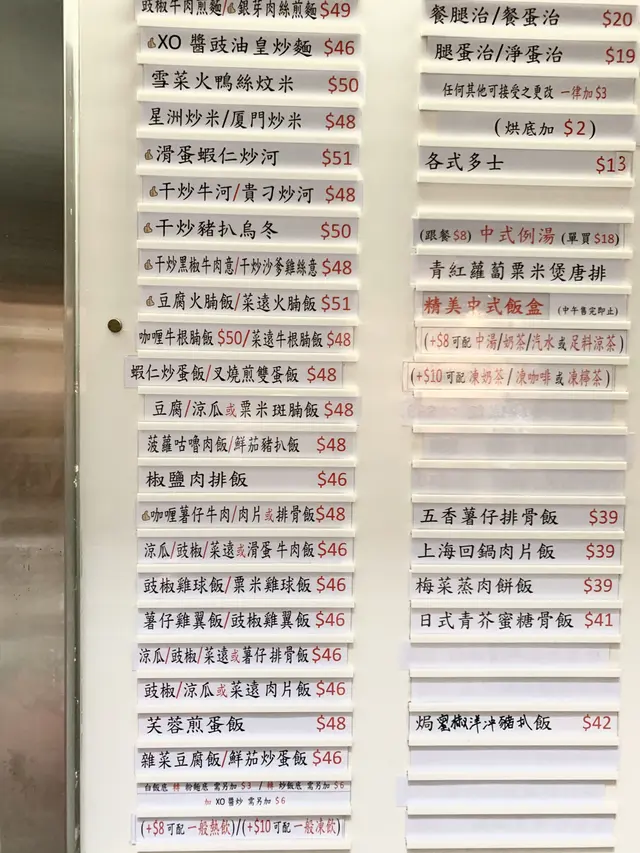 豉椒牛肉煎麵/銀芽肉絲煎麵$49
XO 醬豉油皇炒麵 $46
雪菜火鴨絲炆米 $50
星洲炒米/厦門炒米 $48
滑蛋蝦仁炒河 $51
干炒牛河/貴刁炒河 $48
干炒豬扒烏冬 $50
干炒黑椒牛肉意/干炒沙爹雞絲意 $48
豆腐火腩飯/菜遠火腩飯 $51
咖喱牛根腩飯 $50/菜遠牛根腩飯 $48
蝦仁炒蛋飯/叉燒煎雙蛋飯 $48
豆腐/涼瓜或粟米斑腩飯 $48
菠蘿咕嚕肉飯/鮮茄豬扒飯 $48
椒鹽肉排飯 $46
咖喱薯仔牛肉/肉片或排骨飯$48
涼瓜/豉椒/菜遠或滑蛋牛肉飯 $46
豉椒雞球飯/粟米雞球飯 $46
薯仔雞翼飯/豉椒雞翼飯 $46
涼瓜/豉椒/菜遠或薯仔排骨飯$46
豉椒/涼瓜或菜遠肉片飯 $46
芙蓉煎蛋飯 $48
雜菜豆腐飯/鮮茄炒蛋飯 $46
白飯底 轉 粉麵底 需另加 $3 / 轉 炒飯底 需另加 $6
加 XO 醬炒 需另加 $6
(+$8可配 一般熱飲)/(+$10可配 一般凍飲)
餐腿治/餐蛋治 $20
腿蛋治/淨蛋治 $19
任何其他可接受之更改 一律加 $3
(烘底加 $2)
各式多士 $13
(跟餐 $8) 中式例湯 (單買 $18)
青紅蘿蔔粟米煲唐排
精美中式飯盒 (中午售完即止)
(+$8可配 中湯/奶茶/汽水 或 足料涼茶)
(+$10可配 凍奶茶/凍咖啡 或 凍檸茶)
五香薯仔排骨飯 $39
上海回鍋肉片飯 $39
梅菜蒸肉餅飯 $39
日式青芥蜜糖骨飯 $41
焗黑椒洋沖豬扒飯 $42